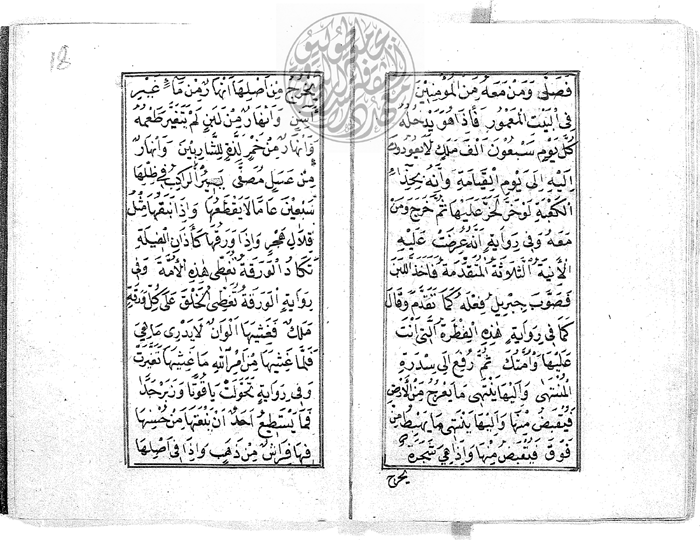 فصلى ومن معه من المؤمنين
فى البيت المعمور فاذا هو يدخله
كل يوم سبعون الف ملك لا يعودون
اليه الى يوم القيامة وانه بحذاء
الكعبة لو خر لخر عليها ثم خرج ومن
معه وفى رواية انه عرضت عليه
الآنية الثلاثة المتقدمة فاخذ اللبن
فصوب جبريل فعله كما تقدم وقال
كما فى رواية هذه الفطرة التى انت
عليها وامتك ثم رفع الى سدرة
المنتهى واليها ينتهى ما يعرج من الارض
فيقبض منها واليها ينتهى ما يهبط من
فوق فيقبض منها واذا هي شجرة
يخرج
18
يخرج من اصلها انهار من ماء غير
آسن وانهار من لبن لم يتغير طعمه
وانهار من خمر لذة للشاربين وانهار
من عسل مصفى يسير الراكب فى ظلها
سبعين عاما لا يقطعها واذا نبقها مثل
قلال هجر واذا ورقها كآذان الفيلة
تكاد الورقة تغطى هذه الامة وفى
رواية الورقة تغطى الخلق على كل ورقة
ملك فغشيها الوان لا يدرى ما هي
فلما غشيها من امر الله ما غشيها تغيرت
وفى رواية تحولت ياقوتا وزبرجدا
فما يستطيع احد ان ينعتها من حسنها
فيها فراش من ذهب واذا فى اصلها